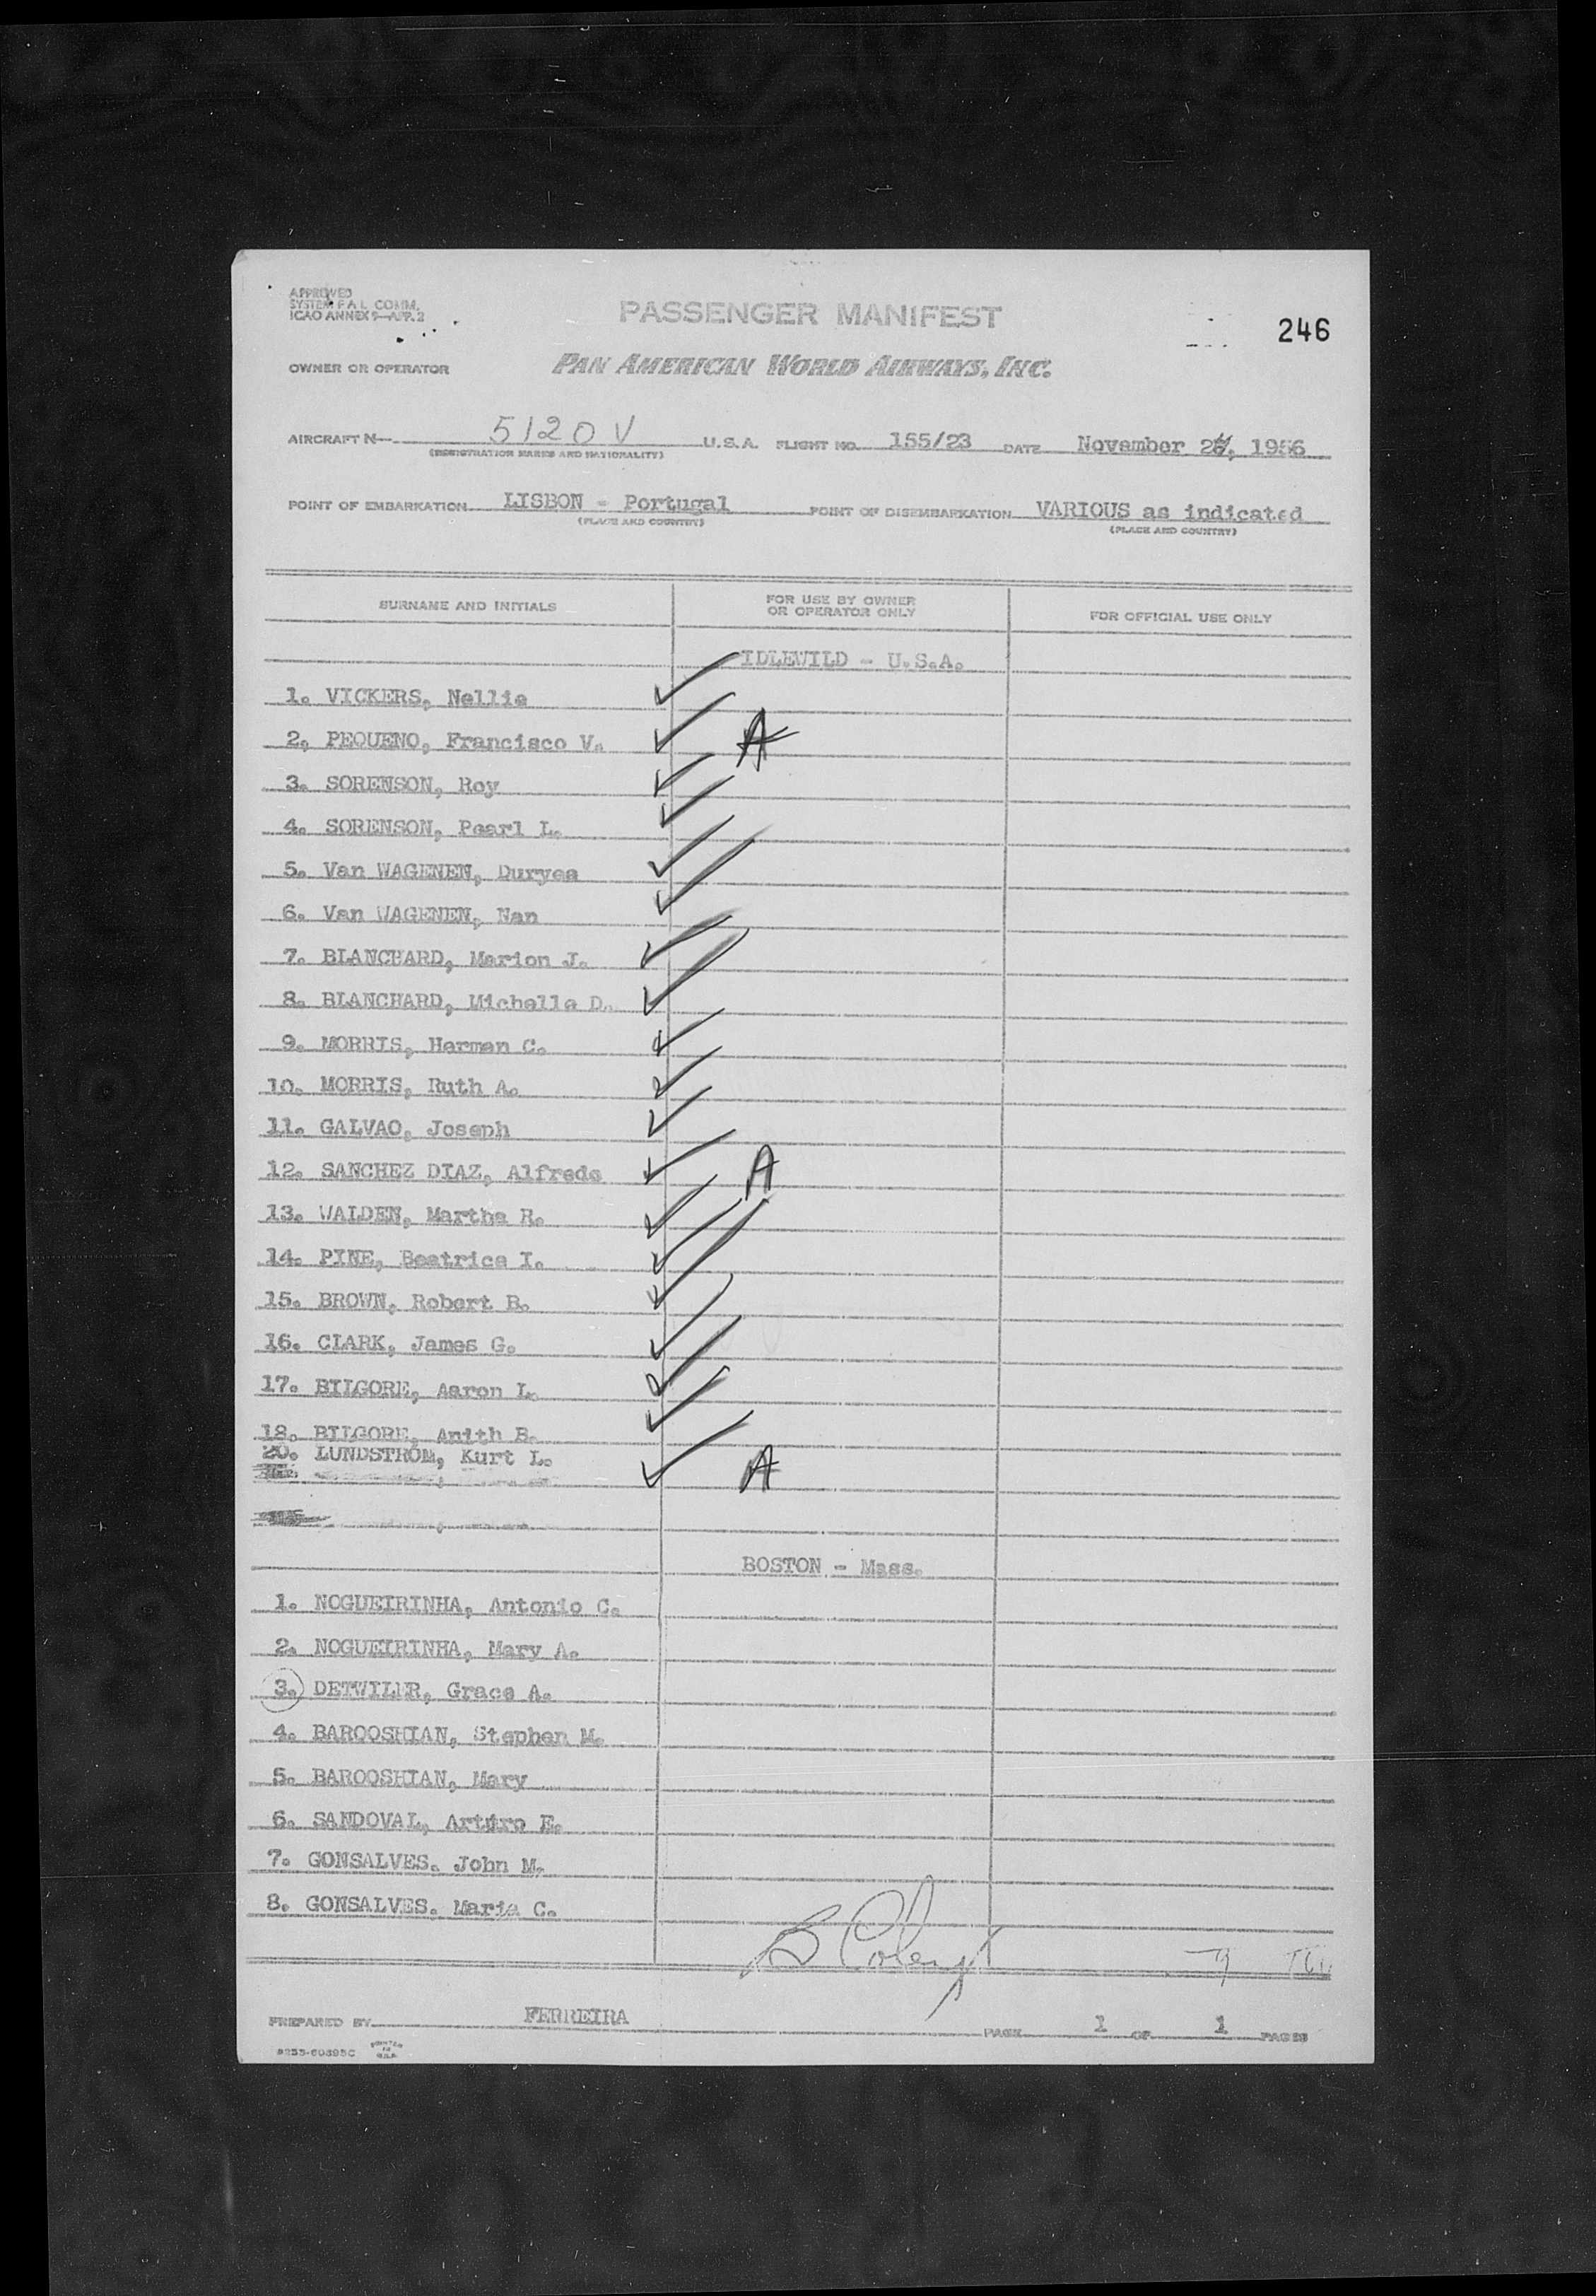 APPROVED
SYSTEM F A L COMM.
ICAO ANNEX 9—APP. 2
PASSENGER MANIFEST
246
OWNER OR OPERATOR
PAN AMERICAN WORLD AIRWAYS, INC.
AIRCRAFT N— 5120V U.S.A. FLIGHT NO. 155/23 DATE November 24, 1956
(REGISTRATION MARKS AND NATIONALITY)
POINT OF EMBARKATION LISBON - Portugal POINT OF DISEMBARKATION VARIOUS as indicated
(PLACE AND COUNTRY) (PLACE AND COUNTRY)
SURNAME AND INITIALS FOR USE BY OWNER OR OPERATOR ONLY FOR OFFICIAL USE ONLY
IDLEWILD - U.S.A.
1. VICKERS, Nellie ✓
2. PEQUENO, Francisco V. ✓ A
3. SORENSON, Roy ✓
4. SORENSON, Pearl L. ✓
5. Van WAGENEN, Duryea ✓
6. Van WAGENEN, Nan ✓
7. BLANCHARD, Marion J. ✓
8. BLANCHARD, Michelle D. ✓
9. MORRIS, Herman C. ✓
10. MORRIS, Ruth A. ✓
11. GALVAO, Joseph ✓
12. SANCHEZ DIAZ, Alfredo ✓ A
13. WALDEN, Martha R. ✓
14. PINE, Beatrice I. ✓
15. BROWN, Robert B. ✓
16. CLARK, James G. ✓
17. BILGORE, Aaron L. ✓
18. BILGORE, Anith B. ✓
20. LUNDSTRÖM, Kurt L. ✓ A
BOSTON - Mass.
1. NOGUEIRINHA, Antonio C.
2. NOGUEIRINHA, Mary A.
3. DETWILER, Grace A.
4. BAROOSHIAN, Stephen M.
5. BAROOSHIAN, Mary
6. SANDOVAL, Arturo E.
7. GONSALVES. John M.
8. GONSALVES. Maria C.
PREPARED BY FERREIRA PAGE 1 OF 1 PAGES
PRINTED
IN
U.S.A.